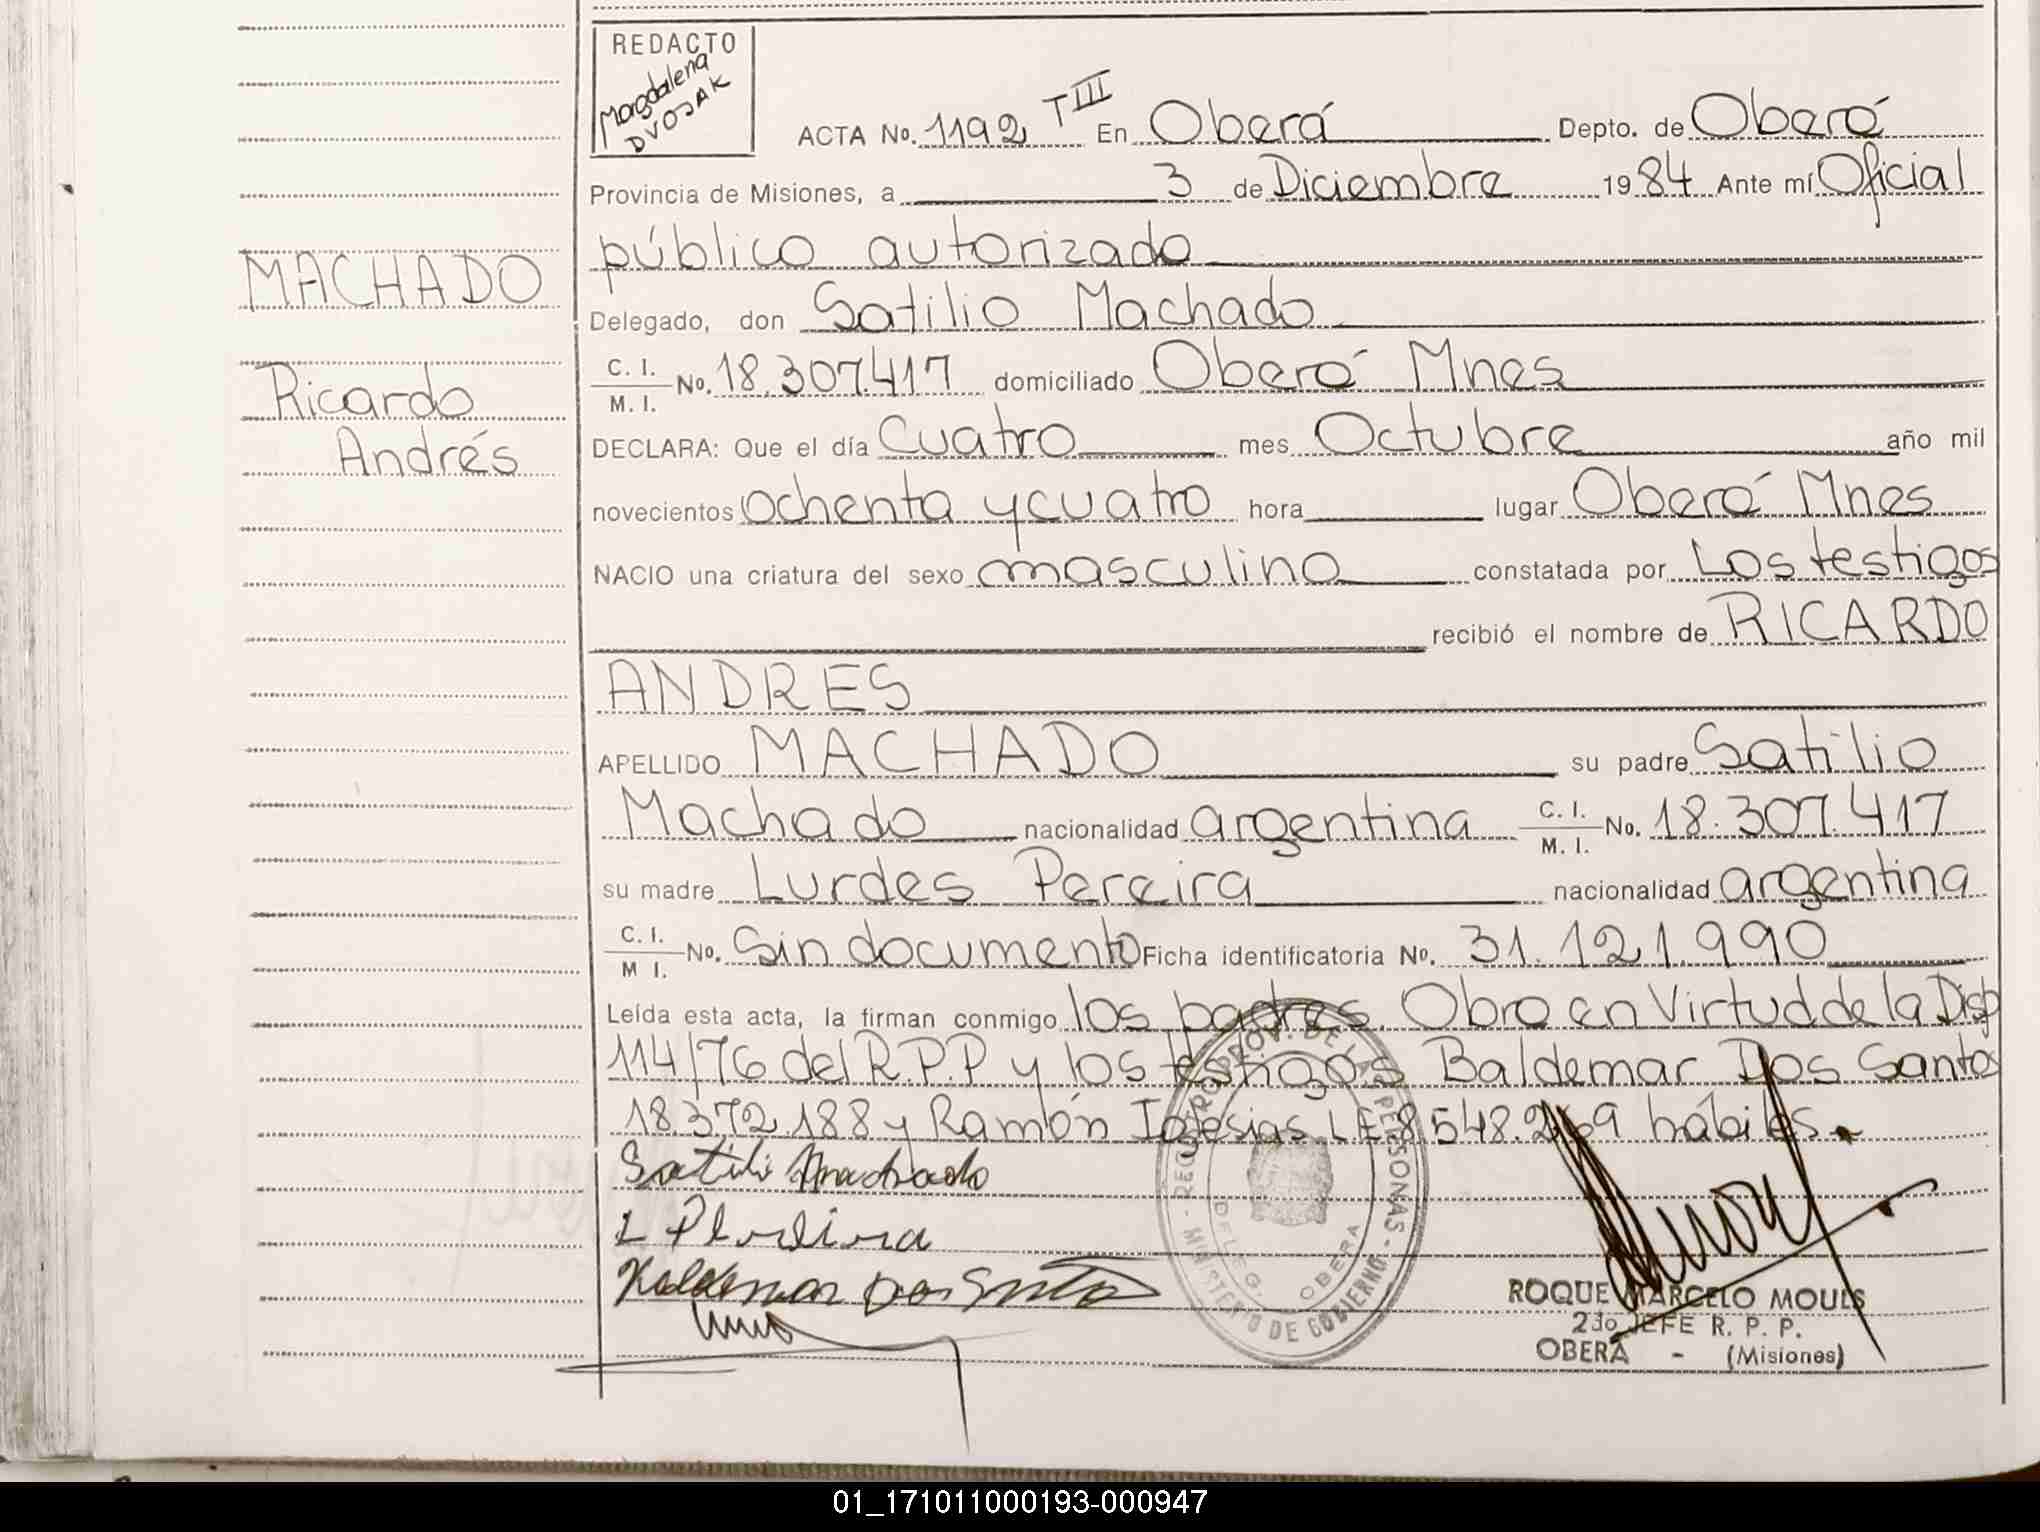 REDACTO
Magdalena
DVOJAK
ACTA No. 1192 T III En Oberá Depto. de Oberá
Provincia de Misiones, a 3 de Diciembre 1984 Ante mí Oficial
público autorizado
MACHADO
Delegado, don Satilio Machado
C. I.
M. I. No. 18.307.417 domiciliado Oberá Mnes
Ricardo
Andrés
DECLARA: Que el día Cuatro mes Octubre año mil
novecientos ochenta y cuatro hora lugar Oberá Mnes
NACIO una criatura del sexo masculino constatada por Los testigos
recibió el nombre de RICARDO
ANDRES
APELLIDO MACHADO su padre Satilio
Machado nacionalidad argentina C. I. M. I. No. 18.307.417
su madre Lurdes Pereira nacionalidad argentina
C. I. M I. No. Sin documento Ficha identificatoria No. 31.121.990
Leída esta acta, la firman conmigo los padres. Obro en Virtud de la Disp
114/76 del R.P.P y los testigos Baldemar Dos Santos
18.372.188 y Ramón Iglesias LE 8.548.269 hábiles.
Satili Machado
L Pereira
Baldemar Dos Santos
REGISTRO PROV. DE LAS PERSONAS - MINISTERIO DE GOBIERNO -
DELEG. OBERA
ROQUE MARCELO MOULS
2do JEFE R. P. P.
OBERÁ - (Misiones)
01_171011000193-000947